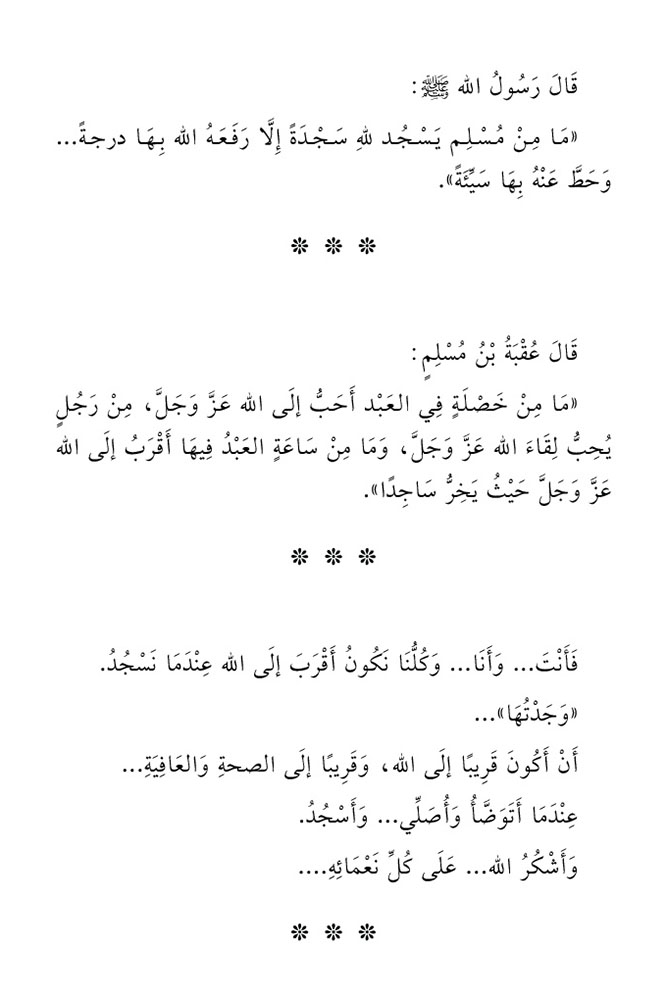 قَالَ رَسُولُ الله ﷺ:
«مَا مِنْ مُسْلِم يَسْجُد للهِ سَجْدَةً إِلَّا رَفَعَهُ الله بِهَا درجةً...
وَحَطَّ عَنْهُ بِهَا سَيِّئَةً».
❊ ❊ ❊
قَالَ عُقْبَةُ بْنُ مُسْلِمٍ:
«مَا مِنْ خَصْلَةٍ فِي العَبْد أَحَبُّ إلَى الله عَزَّ وَجَلَّ، مِنْ رَجُلٍ
يُحِبُّ لِقَاءَ الله عَزَّ وَجَلَّ، وَمَا مِنْ سَاعَةٍ العَبْدُ فِيهَا أَقْرَبُ إلَى الله
عَزَّ وَجَلَّ حَيْثُ يَخِرُّ سَاجِدًا».
❊ ❊ ❊
فَأَنْتَ... وَأَنَا... وَكُلُّنَا نَكُونُ أَقْرَبَ إلَى الله عِنْدَمَا نَسْجُدُ.
«وَجَدْتُهَا»...
أَنْ أَكُونَ قَرِيبًا إلَى الله، وَقَرِيبًا إلَى الصحةِ وَالعَافِيَةِ...
عِنْدَمَا أَتَوَضَّأُ وَأُصَلِّي... وَأَسْجُدُ.
وَأَشْكُرُ الله... عَلَى كُلِّ نَعْمَائِهِ....
❊ ❊ ❊